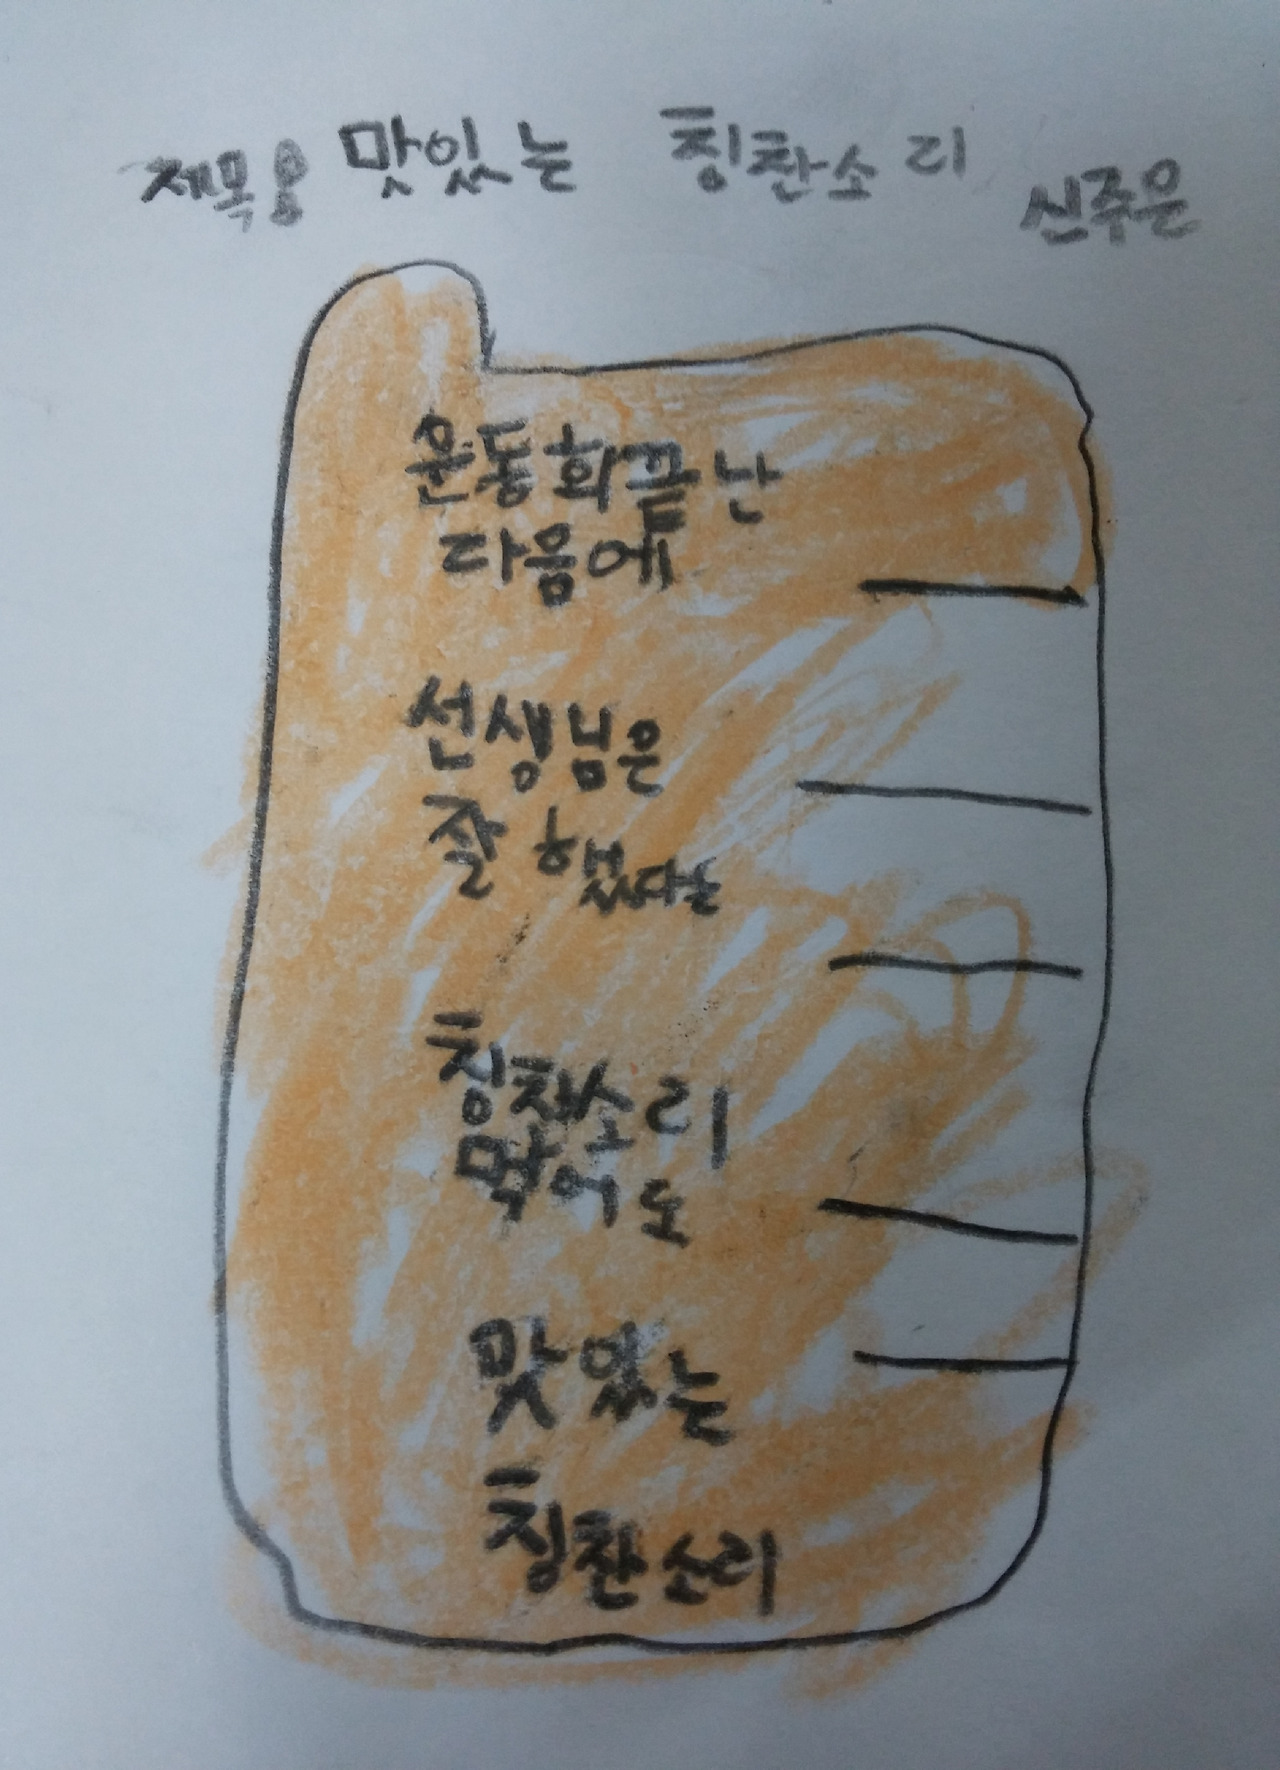 제목: 맛있는 칭찬소리 신주은
운동회끝난
다음에
선생님은
잘 했다는
칭찬소리
먹어도
맛있는
칭찬소리